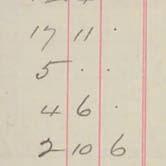 17 11 .
5 . .
4 6 .
2 10 6